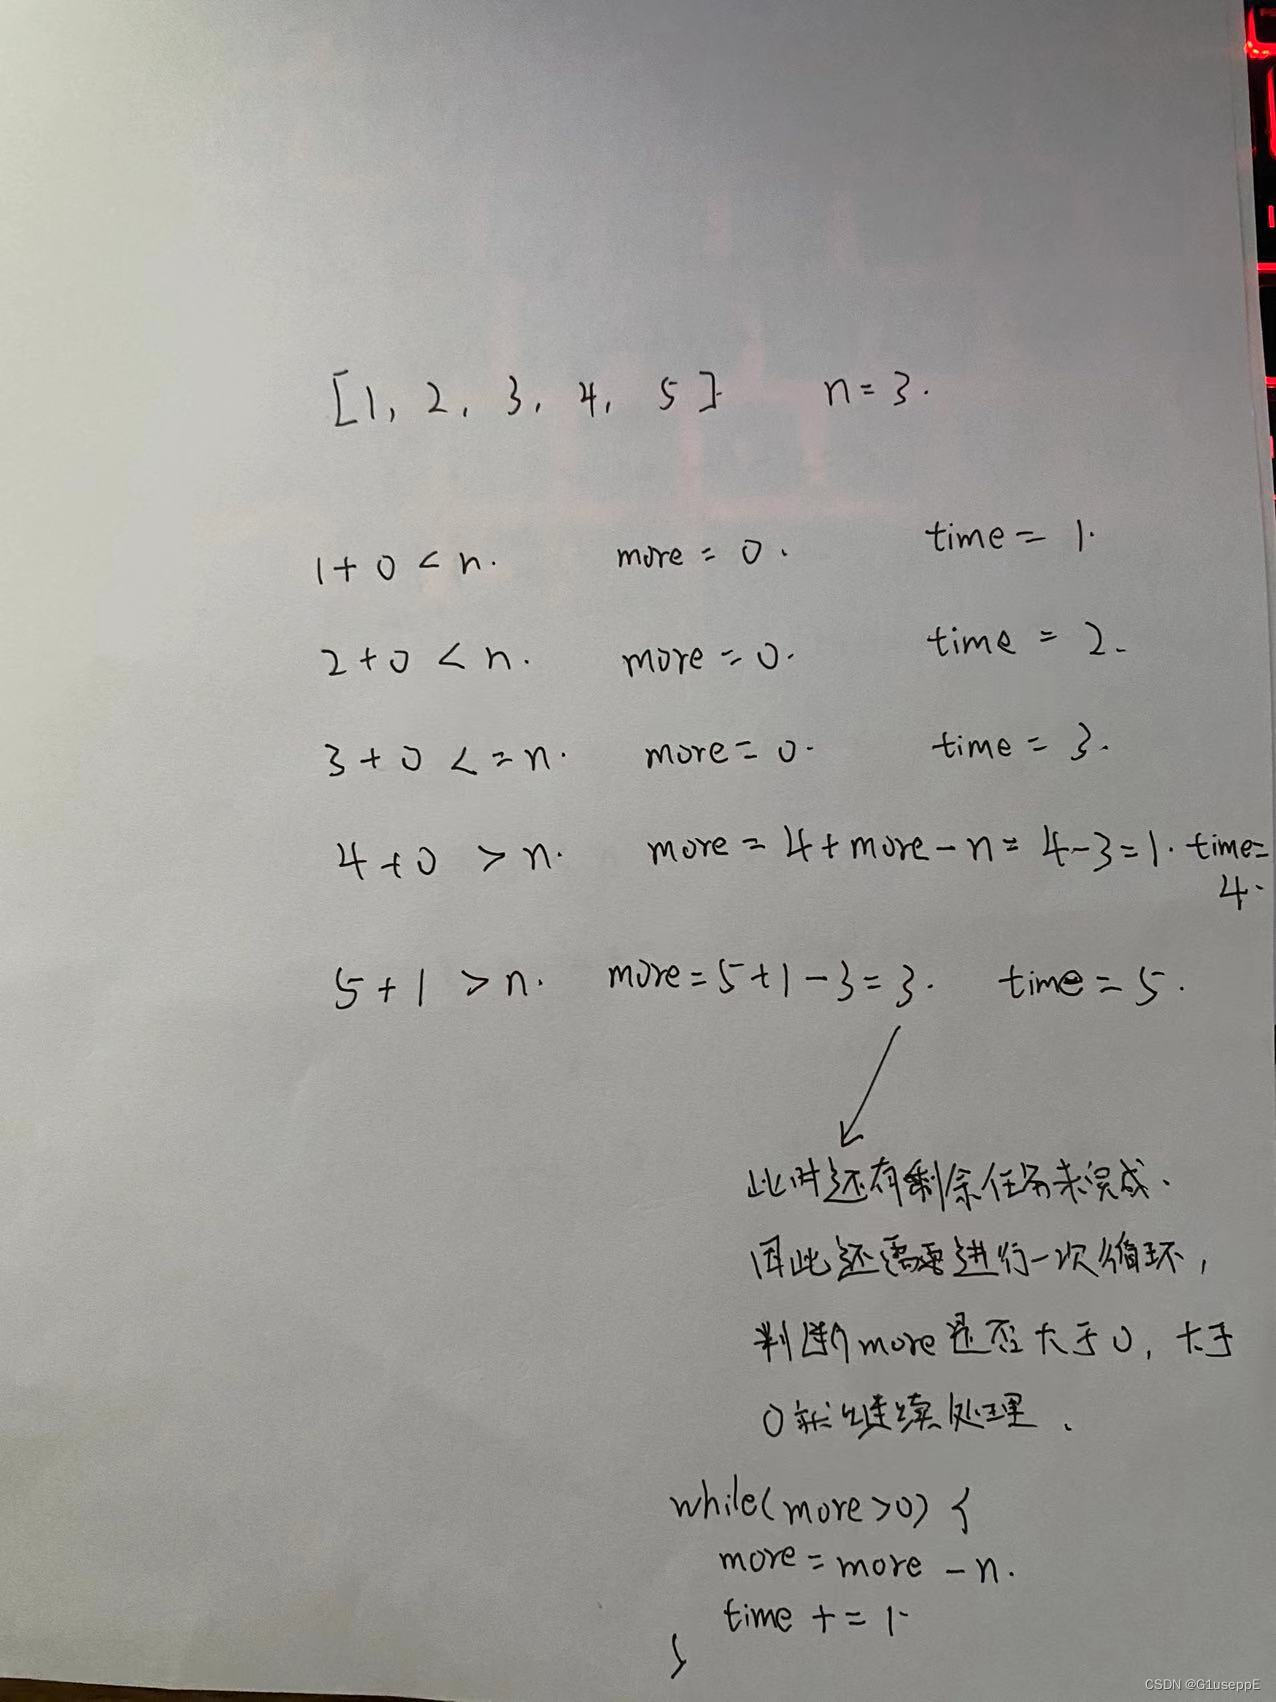 [1, 2, 3, 4, 5] n=3.
1+0<n. more=0. time=1.
2+0<n. more=0. time=2.
3+0<=n. more=0. time=3.
4+0>n. more=4+more-n=4-3=1. time=
4.
5+1>n. more=5+1-3=3. time=5.
此时还有剩余任务未完成.
因此还需要进行一次循环,
判断more是否大于0, 大于
0就继续处理.
while(more>0) {
more=more-n.
time+=1.
}
CSDN @G1useppE